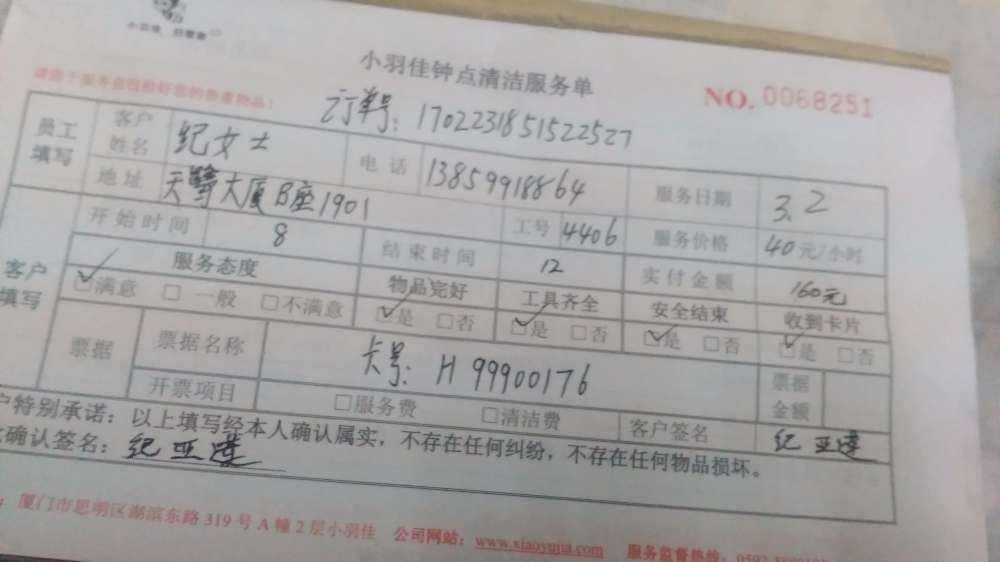 小羽佳钟点清洁服务单
NO. 0068251
请您于服务前收拾好您的贵重物品！
订单号：1702231851522527
员工填写 客户姓名 纪女士 电话 13859918864 服务日期 3.2
地址 天鹭大厦B座1901 工号 4406 服务价格 40元/小时
开始时间 8 结束时间 12 实付金额 160元
客户填写 服务态度 物品完好 工具齐全 安全结束 收到卡片
☑满意 □一般 □不满意 ☑是 □否 ☑是 □否 ☑是 □否 ☑是 □否
票据 票据名称 卡号：H 99900176 票据金额
开票项目 □服务费 □清洁费 客户签名 纪亚莲
户特别承诺：以上填写经本人确认属实，不存在任何纠纷，不存在任何物品损坏。
确认签名：纪亚莲
厦门市思明区湖滨东路319号A幢2层小羽佳 公司网站：www.xiaoyujia.com 服务监督热线：0592